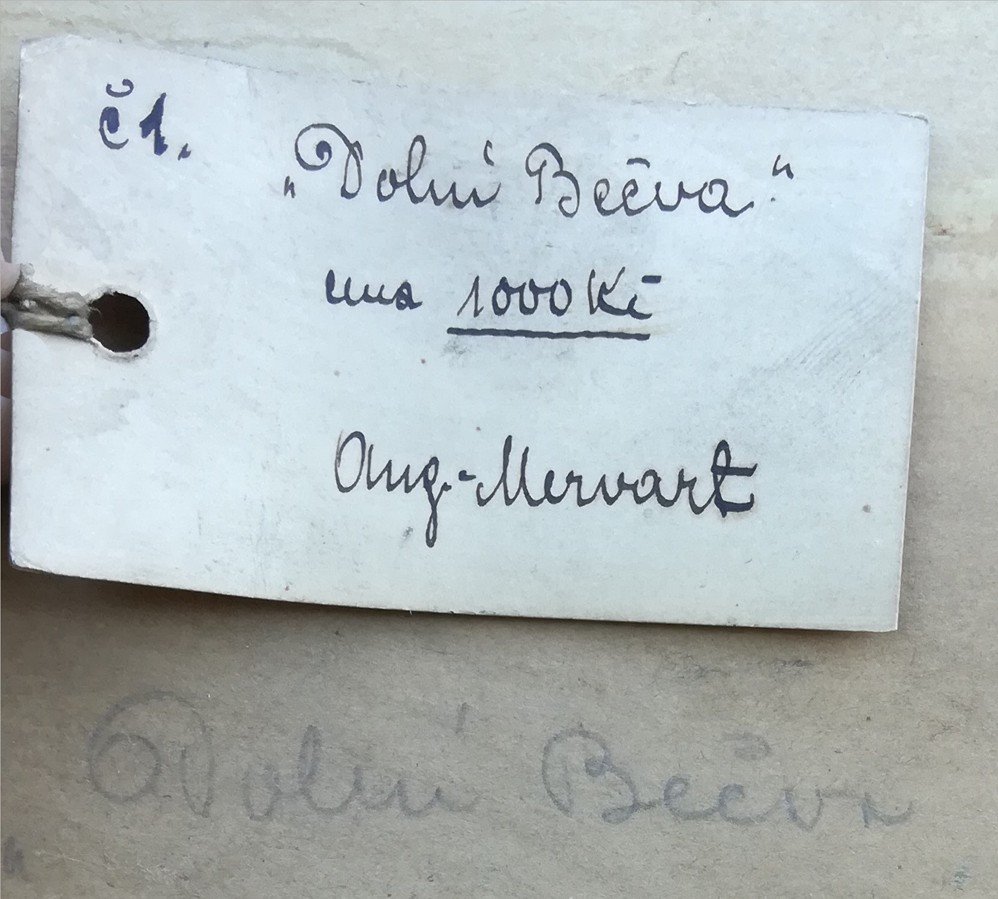 č1.
„Dolní Bečva“
cena 1000 Kč
Aug. Mervart
„Dolní Bečva